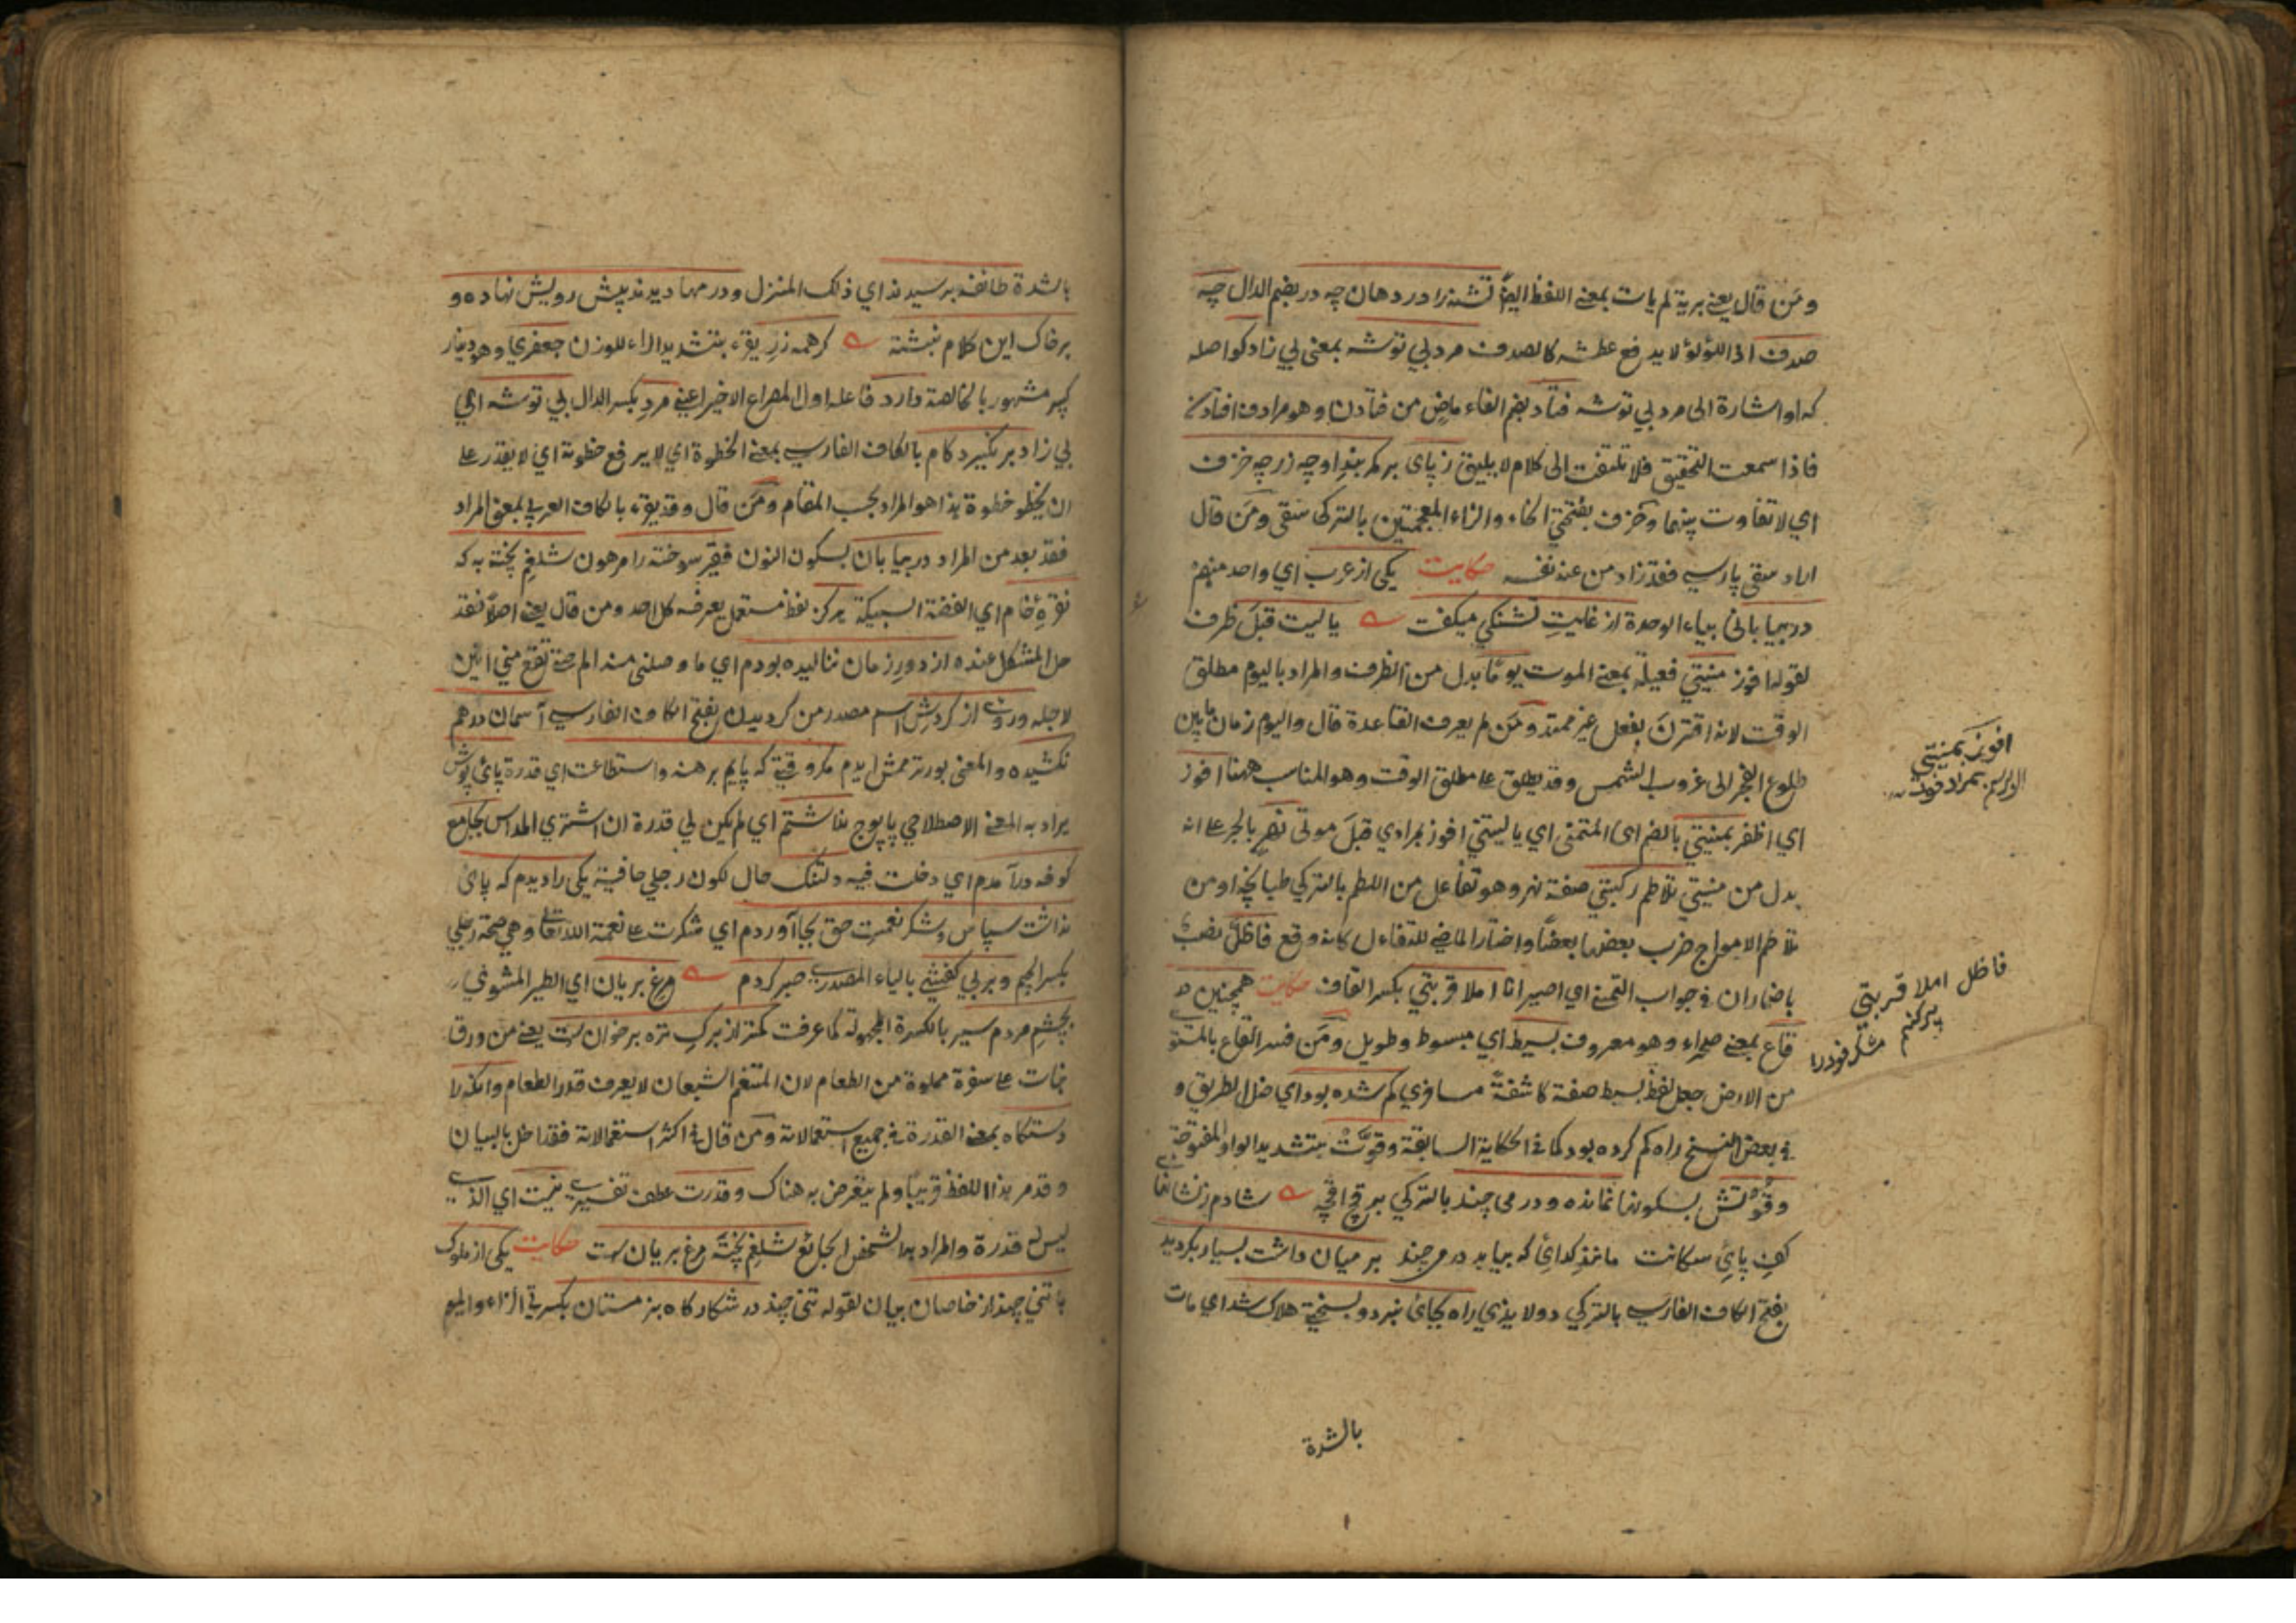 ومن قال يعني برية لم يات بمعنى اللفظ ايضا تشنه را در دهان چه در بضم الدال چه
صدف اى اللؤلؤ لا يدفع عطشه كالصدف مرد بي توشه بمعنى بي زاد كو اصله
كه او اشارة الى مرد بي توشه فتاد بضم الفاء ماض من فتادن وهو مرادف افتادن
فاذا سمعت التحقيق فلا تلتفت الى كلام لا يليق ز پاى بر كمر بند او چه زر چه خزف
اي لا تفاوت بينهما وخزف بفتحتي الخاء والزاء المعجمتين بالتركى سقى ومن قال
اراد سقى پارسي فقد زاد من عند نفسه حكايت يكى از عرب اي واحد منهم
در بيابانى بياء الوحدة از غايت تشنكي ميكفت يا ليت قبل ظرف
لقوله افوز منيتي فعيلة بمعنى الموت يوما بدل من الظرف والمراد باليوم مطلق
الوقت لانه اقترن بفعل غير ممتد ومن لم يعرف القاعدة قال واليوم زمان ما بين
طلوع الفجر الى غروب الشمس وقد يطلق على مطلق الوقت وهو المناسب ههنا افوز
اي اظفر بمنيتي بالضم اى المتمنى اي يا ليتني افوز بمرادي قبل موتى نهر بالجر على انه
بدل من منيتي تلاطم ركبتي صفة نهر وهو تفاعل من اللطم بالتركي طبانچه اومن
تلاطم الامواج ضرب بعضها بعضا واختار الماضي للتفاءل كانه وقع فاظل نصب
باضمار ان في جواب التمني اى اصير انا املا قربتي بكسر القاف حكايت همچنين در
قاع بمعنى صحراء وهو معروف بسيط اي مبسوط وطويل ومن فسر القاع بالمستوي
من الارض جعل لفظ بسيط صفة كاشفة مسافري كم شده بود اي ضل الطريق و
في بعض النسخ راه كم كرده بود كما في الحكاية السابقة وقوت بتشديد الواو المفتوحة
وقوتش بسكونها نمانده ودرمى چند بالتركي بر قچ اقچه
بر ميان داشت بسيار بكرديد
بفتح الكاف الفارسي بالتركي دولاندي راه بجائى نبرد وبسختي هلاك شد اي مات
بالشدة
افوز بمنيتي
فاظل املا قربتي
بالشدة طائفه برسيدند اي ذلك المنزل ودرمها ديدند پيش رويش نهاده و
بر خاك اين كلام نبشته كر همه زر يقرء بتشديد الراء للوزن جعفري وهو دينار
كبير مشهور بالخالصة دارد فاعله اول المصراع الاخير اعني مرد بكسر الدال بي توشه اي
بي زاد بر نكيرد كام بالكاف الفارسي بمعنى الخطوة اي لا يرفع خطوته اي لا يقدر على
ان يخطو خطوة هذا هو المراد بحسب المقام ومن قال وقد يقرء بالكاف العربي بمعنى المراد
فقد بعد من المراد در بيابان بسكون النون فقير سوخته را مرهون شلغم پخته به كه
نقرۀ خام اي الفضة السبيكة هركز لفظ مستعمل يعرفه كل احد ومن قال يعني اصلا فقد
حل المشكل عنده از دور زمان نناليده بودم اي ما وصلني منه الم حتى تقع مني انين
لاجله وروى از كردش اسم مصدر من كرديدن بفتح الكاف الفارسي آسمان درهم
نكشيده والمعنى بورترممش ايدم مكر وقتي كه پايم برهنه واستطاعت اي قدرة پائ پوش
يراد به المعنى الاصطلاحي پاپوج نداشتم اي لم يكن لي قدرة ان اشتري المداس بجامع
كوفه درآمدم اي دخلت فيه دلتنك حال لكون رجلي حافية يكى را ديدم كه پاى
نداشت سپاس وشكر نعمت حق بجا آوردم اي شكرت على نعمة الله تعالى وهي صحة رجلي
بكسر الجيم وبر بي كفشي بالياء المصدري صبر كردم مرغ بريان اي الطير المشوي
بچشم مردم سير بالكسرة المجهولة كما عرفت كمتر از برك تره بر خوان است يعني من ورق
نبات على سفرة مملوة من الطعام لان المتنعم الشبعان لا يعرف قدر الطعام وانكه را
دستكاه بمعنى القدرة في جميع استعمالاته ومن قال في اكثر استعمالاته فقد اخل بالبيان
وقد مر هذا اللفظ قريبا ولم يتعرض به هناك وقدرت عطف تفسيري نيست اي الذي
ليس له قدرة والمراد به الشخص الجائع شلغم پخته مرغ بريان است حكايت يكى از ملوك
با تنى چند از خاصان بيان لقوله تنى چند در شكاركاه بزمستان بكسرتي الزاء والميم